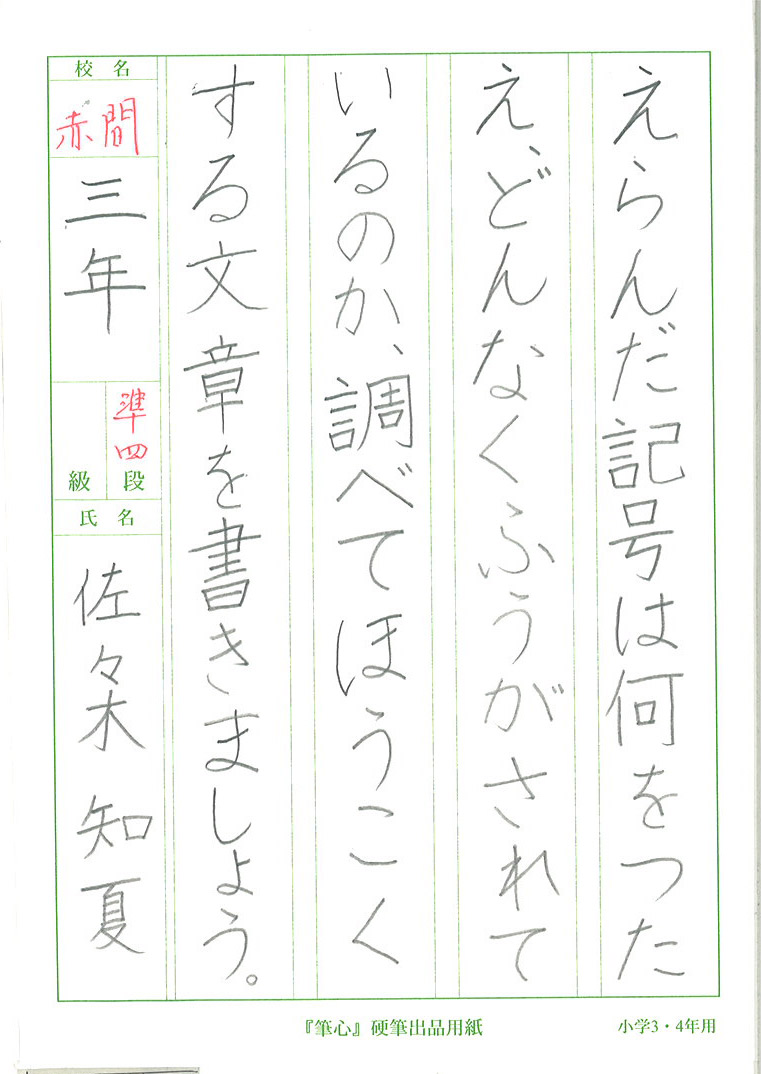 えらんだ記号は何をつた
え、どんなくふうがされて
いるのか、調べてほうこく
する文章を書きましょう。
校名
赤間
三年
準四
段
級
氏名
佐々木 知夏
『筆心』硬筆出品用紙
小学3・4年用